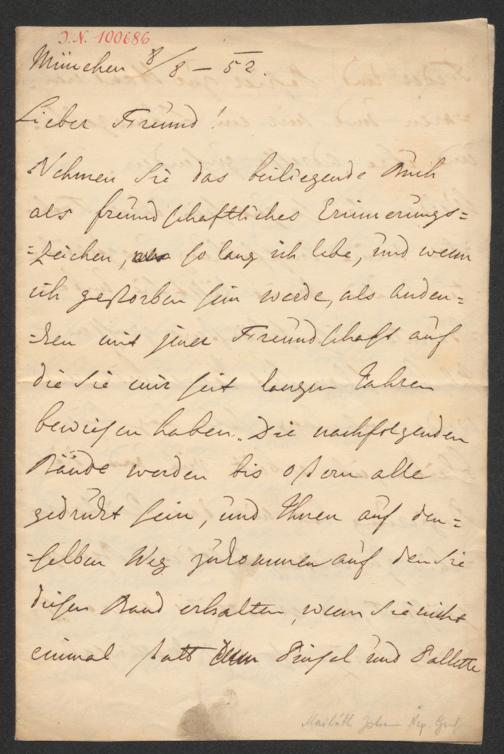 I.N. 100686
München 8/8 – 52.
Lieber Freund!
Nehmen Sie das beiliegende Buch
als freundschaftliches Erinnerungs=
=zeichen, so lang ich lebe, und wenn
ich gestorben sein werde, als Anden=
=ken mit jener Freundschaft auf
die Sie mir seit langen Jahren
bewiesen haben. Die nachfolgenden
Bände werden bis Ostern alle
gedrukt sein, und Ihnen auf den=
=selben Weg zukommen auf den Sie
diesen Band erhalten, wenn Sie nicht
einmal statt Pinsel und Pallette
Mailáth Johann Nep. Graf